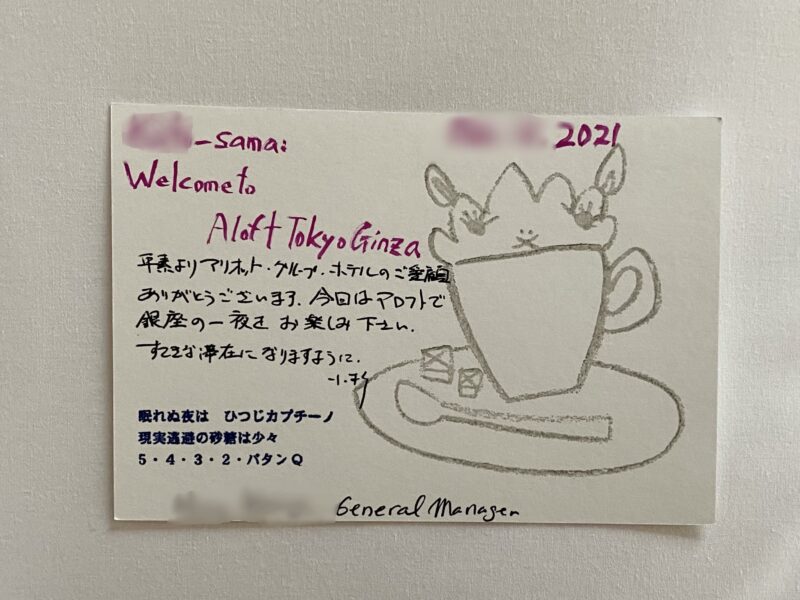 -sama:
2021
Welcome to
Aloft Tokyo Ginza
平素よりマリオット・グループ・ホテルのご愛顧
ありがとうございます。今回はアロフトで
銀座の一夜を お楽しみ下さい。
すてきな滞在になりますように。
眠れぬ夜は ひつじカプチーノ
現実逃避の砂糖は少々
5・4・3・2・バタンQ
General Manager